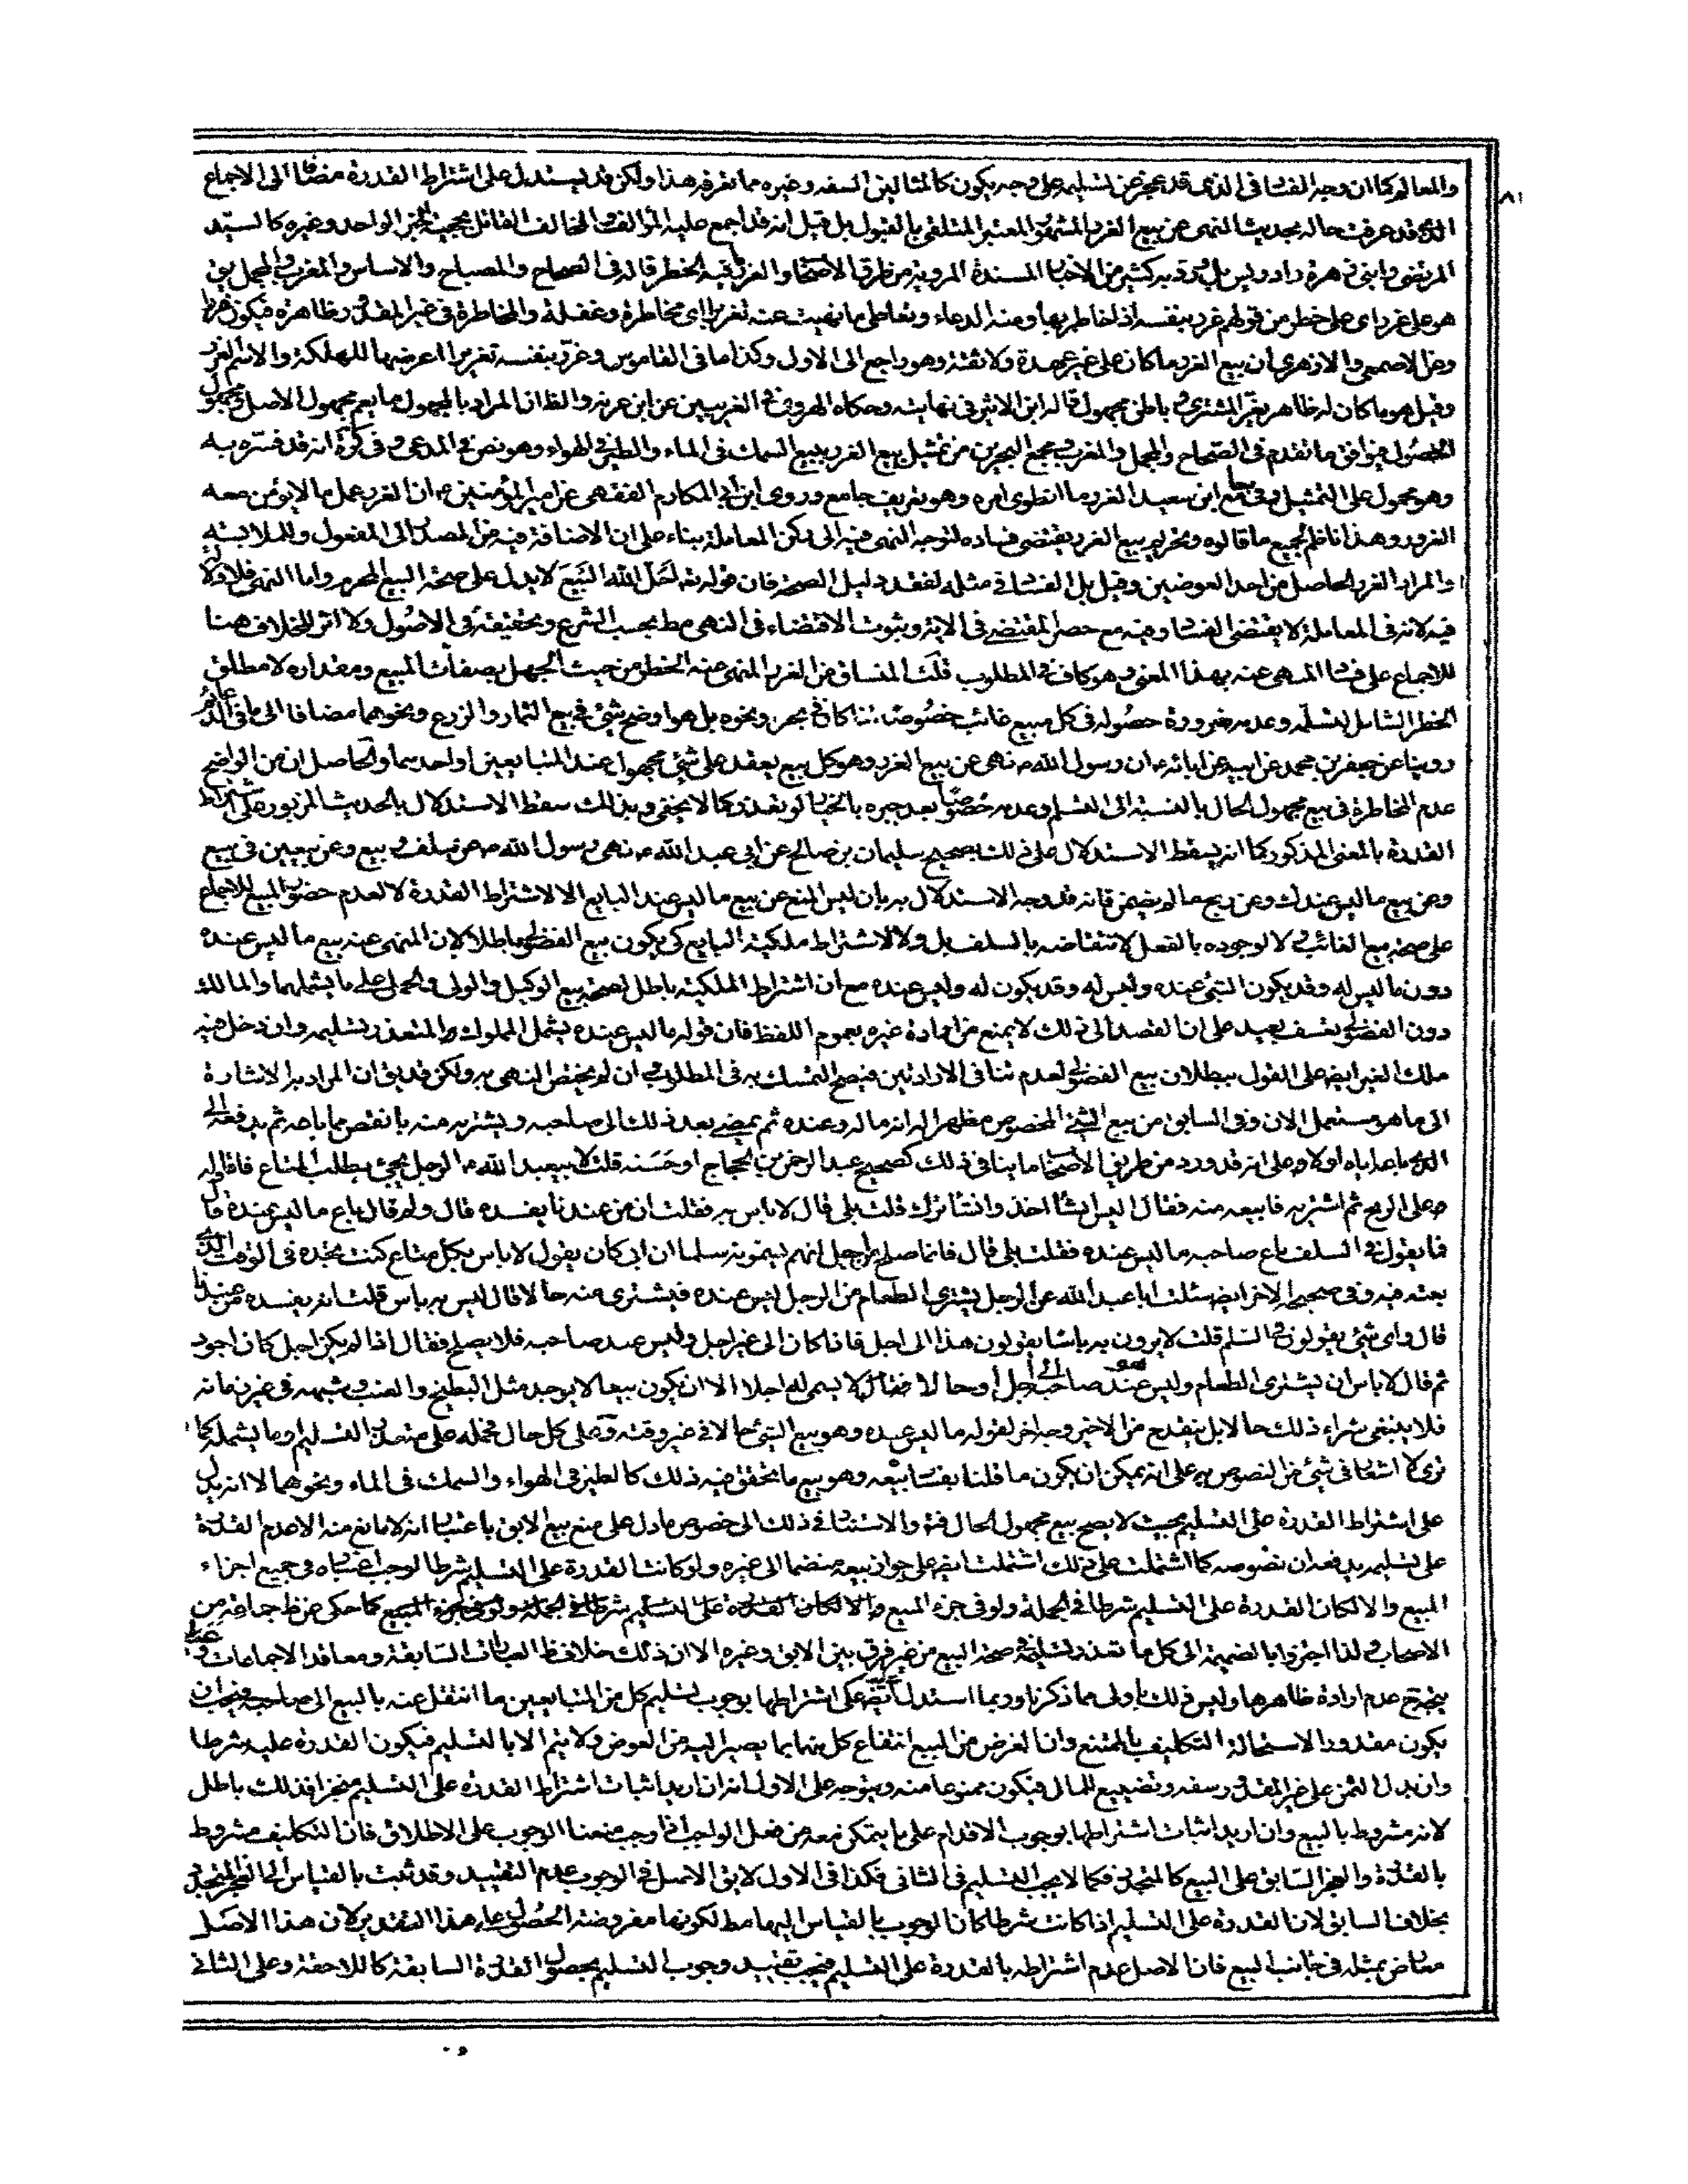 والمعالم كما ان وجه الفساد في الذى قد عجز عن تسليمه على وجه يكون كالمثالين السفه وغيره مما تعرفه هذا ولكن قد يستدل على اشتراط القدرة مضافا الى الاجماع
الذى قد عرفت حاله بحديث النهى عن بيع الغرر المشهور المعتبر المتلقى بالقبول بل قيل انه قد اجمع عليه المؤالف والمخالف القائل بحجية الخبر الواحد وغيره كالسيد
المرتضى وابنى زهرة وادريس بل يروونه كثير من الاخبار المسندة المروية من طرق الاصحاب والغرر بمعنى الخطر قاله في الصحاح والمصباح والاساس والمغرب والمجمل يق
هو على غرر اى على خطر من قولهم غرر بنفسه اذا خاطر بها ومنه الدعاء وتعاطى ما نهيت عنه تغريرا اى مخاطرة وغفلة والمخاطرة في غير المقدور ظاهرة فيكون غررا
وعن الاصمعى والازهرى ان بيع الغرر ما كان على غير عهدة ولا ثقة وهو راجع الى الاول وكذا ما في القاموس وغرر بنفسه تغريرا اعرضها للهلكة والاسم الغرر
وقيل هو ما كان له ظاهر يغر المشترى وباطن مجهول قاله ابن الاثير في نهايته وحكاه الهروى في الغريبين عن ابن عرفة والظاهر ان المراد بالمجهول ما يعم مجهول الاصل ومجهول
الحصول فيوافق ما تقدم في الصحاح والمجمل والمغرب ومجمع البحرين من تمثيل بيع الغرر ببيع السمك في الماء والطير في الهواء وهو نص في المدعى وفى كرة انه قد فسره به
وهو محمول على التمثيل وفي جامع ابن سعيد الغرر ما انطوى امره وهو تعريف جامع وروى ابن ابى المكارم الفقهى عن امير المؤمنين ع ان الغرر عمل ما لا يؤمن معه
الغرور وهذا ناظم لجميع ما قالوه وتحريم بيع الغرر يقتضى فساده لتوجه النهى فيه الى ركن المعاملة بناء على ان الاضافة فيه من المصدر الى المفعول وللملابسة
والمراد الغرر الحاصل من احد العوضين وقيل بل الفساد في مثله لفقد دليل الصحة فان قوله تع احل الله البيع لا يدل على صحة البيع المحرم واما النهى فلا دلالة
فيه لانه في المعاملة لا يقتضى الفساد وفيه مع حصر المقتضى في الاية وثبوت الاقتضاء في النهى مط بحسب الشرع وتحقيقه في الاصول ولا اثر للخلاف هنا
للاجماع على فساد المنهى عنه بهذا المعنى وهو كاف في المطلوب قلت المنساق من الغرر المنهى عنه الخطر من حيث الجهل بصفات المبيع ومقداره لا مطلق
الخطر الشامل لتسلمه وعدمه ضرورة حصوله في كل مبيع غائب خصوصا اذا كان في بحر ونحوه بل هو اوضح شئ في بيع الثمار والزرع ونحوهما مضافا الى ما في الدعائم
روينا عن جعفر بن محمد عن ابيه عن ابائه ع ان رسول الله ص نهى عن بيع الغرر وهو كل بيع يعقد على شئ مجهول عند المتبايعين او احدهما والحاصل ان من الواضح
عدم المخاطرة في بيع مجهول الحال بالنسبة الى التسلم وعدمه خصوصا بعد جبره بالخيار لو تعذر وكما لا يخفى وبذلك سقط الاستدلال بالحديث المزبور على اشتراط
القدرة بالمعنى المذكور كما انه يسقط الاستدلال على ذلك بصحيح سليمان بن صالح عن ابى عبد الله ع نهى رسول الله ص عن سلف وبيع وعن بيعين في بيع
وعن بيع ما ليس عندك وعن ربح ما لم يضمن فانه قد وجه الاستدلال به بان ليس المنع عن بيع ما ليس عند البايع الا لاشتراط القدرة لا لعدم حضور المبيع للاجماع
على صحة بيع الغائب ولا لوجوده بالفعل لانتقاضه بالسلف بل ولا لاشتراط ملكية البايع كى يكون بيع الفضولى باطلا لان المنهى عنه بيع ما ليس عنده
دون ما ليس له وقد يكون الشئ عنده وليس له وقد يكون له وليس عنده مع ان اشتراط الملكية باطل لصحة بيع الوكيل والولى والحمل على ما يشملهما والمالك
دون الفضولى تعسف بعيد على ان القصد الى ذلك لا يمنع من ارادة غيره بعموم اللفظ فان قوله ما ليس عنده يشمل المملوك المتعذر تسليمه وان دخل فيه
ملك الغير ايضا على القول ببطلان بيع الفضولى لعدم تنافى الارادتين فيصح التمسك به في المطلوب وان لم يختص النهى به ولكن قد يق ان المراد به الاشارة
الى ما هو مستعمل الان وفى السابق من بيع الشئ المخصوص مظهرا انه ماله وعنده ثم يمضى بعد ذلك الى صاحبه ويشتريه منه بانقص مما باعه ثم يدفعه الى
الذى باعه اياه اولا وعلى انه قد ورد من طريق الاصحاب ما ينافى ذلك كصحيح عبد الرحمن بن الحجاج او حسنه قلت لابيعبد الله ع الرجل يجئ يطلب المتاع فاقاوله
على الربح ثم اشتريه فابيعه منه فقال اليس ان شاء اخذ وان شاء ترك قلت بلى قال لا باس به فقلت ان من عندنا يفسده قال ولم قال باع ما ليس عنده قال
فما يقول في السلف باع صاحبه ما ليس عنده فقلت بلى قال فانما صلح من اجل انهم يسمونه سلما ان ابى كان يقول لا باس بكل متاع كنت تجده في الوقت الذى
بعته فيه وفى صحيحه الاخر ايضا سئلت ابا عبد الله عن الرجل يشترى الطعام من الرجل ليس عنده فيشترى منه حالا قال ليس به باس قلت انه يفسده من عندنا
قال واى شئ يقولون في السلم قلت لا يرون به باسا يقولون هذا الى اجل فاذا كان الى غير اجل وليس عند صاحبه فلا يصلح فقال اذا لم يكن اجل كان اجود
ثم قال لا باس ان يشترى الطعام وليس هو عند صاحبه الى اجل او حالا فقال لا يسمى له اجلا الا ان يكون بيعا لا يوجد مثل البطيخ والعنب وشبهه في غير زمانه
فلا ينبغى شراء ذلك حالا بل ينقدح من الاخير وجه اخر لقوله ما ليس عنده وهو بيع الشئ حالا في غير وقته وعلى كل حال فحمله على متعذر التسليم او ما يشمله كما
ترى لا اشعار في شئ من النصوص به على انه يمكن ان يكون ما قلنا بفساد بيعه وهو بيع ما تحقق فيه ذلك كالطير في الهواء والسمك في الماء ونحوهما لا انه يدل
على اشتراط القدرة على التسليم بحيث لا يصح بيع مجهول الحال فيه والاستناد في ذلك الى خصوص ما دل على منع بيع الابق باعتبار انه لا مانع منه الا عدم القدرة
على تسليمه يدفعه ان نصوصه كما اشتملت على ذلك اشتملت ايضا على جواز بيعه منضما الى غيره ولو كانت القدرة على التسليم شرطا لوجب اعتباره في جميع اجزاء
المبيع والا لكان القدرة على التسليم شرطا في الجملة ولو في جزء المبيع كما حكى عن ظاهر جماعة من
الاصحاب ولذا اجتزوا بالضميمة الى كل ما تعذر تسليمه في صحة البيع من غير فرق بين الابق وغيره الا ان ذلك خلاف ظ العبارات السابقة ومعاقد الاجماعات
يتجه عدم ارادة ظاهرها وليس ذلك باولى مما ذكرنا وربما استدل ايضا على اشتراطها بوجوب تسليم كل من المتبايعين ما انتقل عنه بالبيع الى صاحبه فيجب ان
يكون مقدورا لاستحالة التكليف بالممتنع وان الغرض من البيع انتفاع كل منهما بما يصير اليه من العوض ولا يتم الا بالتسليم فيكون القدرة عليه شرطا
وان بذل الثمن على غير المقدور سفه وتضييع للمال فيكون ممنوعا منه ويتوجه على الاول انه ان اريد اثبات اشتراط القدرة على التسليم منجزا فذلك باطل
لانه مشروط بالبيع وان اريد اثبات اشتراطها بوجوب الاقدام على ما يتمكن معه من فعل الواجب اذا وجب منعنا الوجوب على الاطلاق فان التكليف مشروط
بالقدرة والعجز السابق على البيع كالمتجدد فكما لا يجب التسليم في الثاني فكذا في الاول لا يق الاصل في الوجوب عدم التقييد وقد ثبت بالقياس الى العجز المتجدد
بخلاف السابق لان القدرة على التسليم اذا كانت شرطا كان الوجوب بالقياس اليها مط لكونها مفروضة الحصول على هذا التقدير لان هذا الاصل
معارض بمثله في جانب البيع فان الاصل عدم اشتراطه بالقدرة على التسليم فيجب تقييد وجوب التسليم بحصول القدرة السابقة كاللاحقة وعلى الثاني